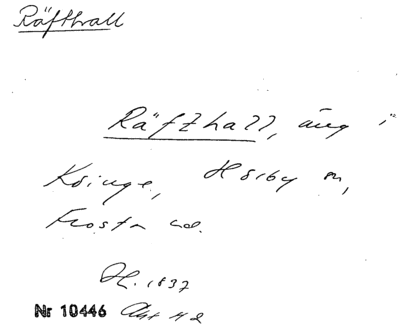 Räfthall
Räfzhall, äng i
Köinge, Hörby sn,
Frosta hd.
H. 1837
Nr 10446 Akt 42